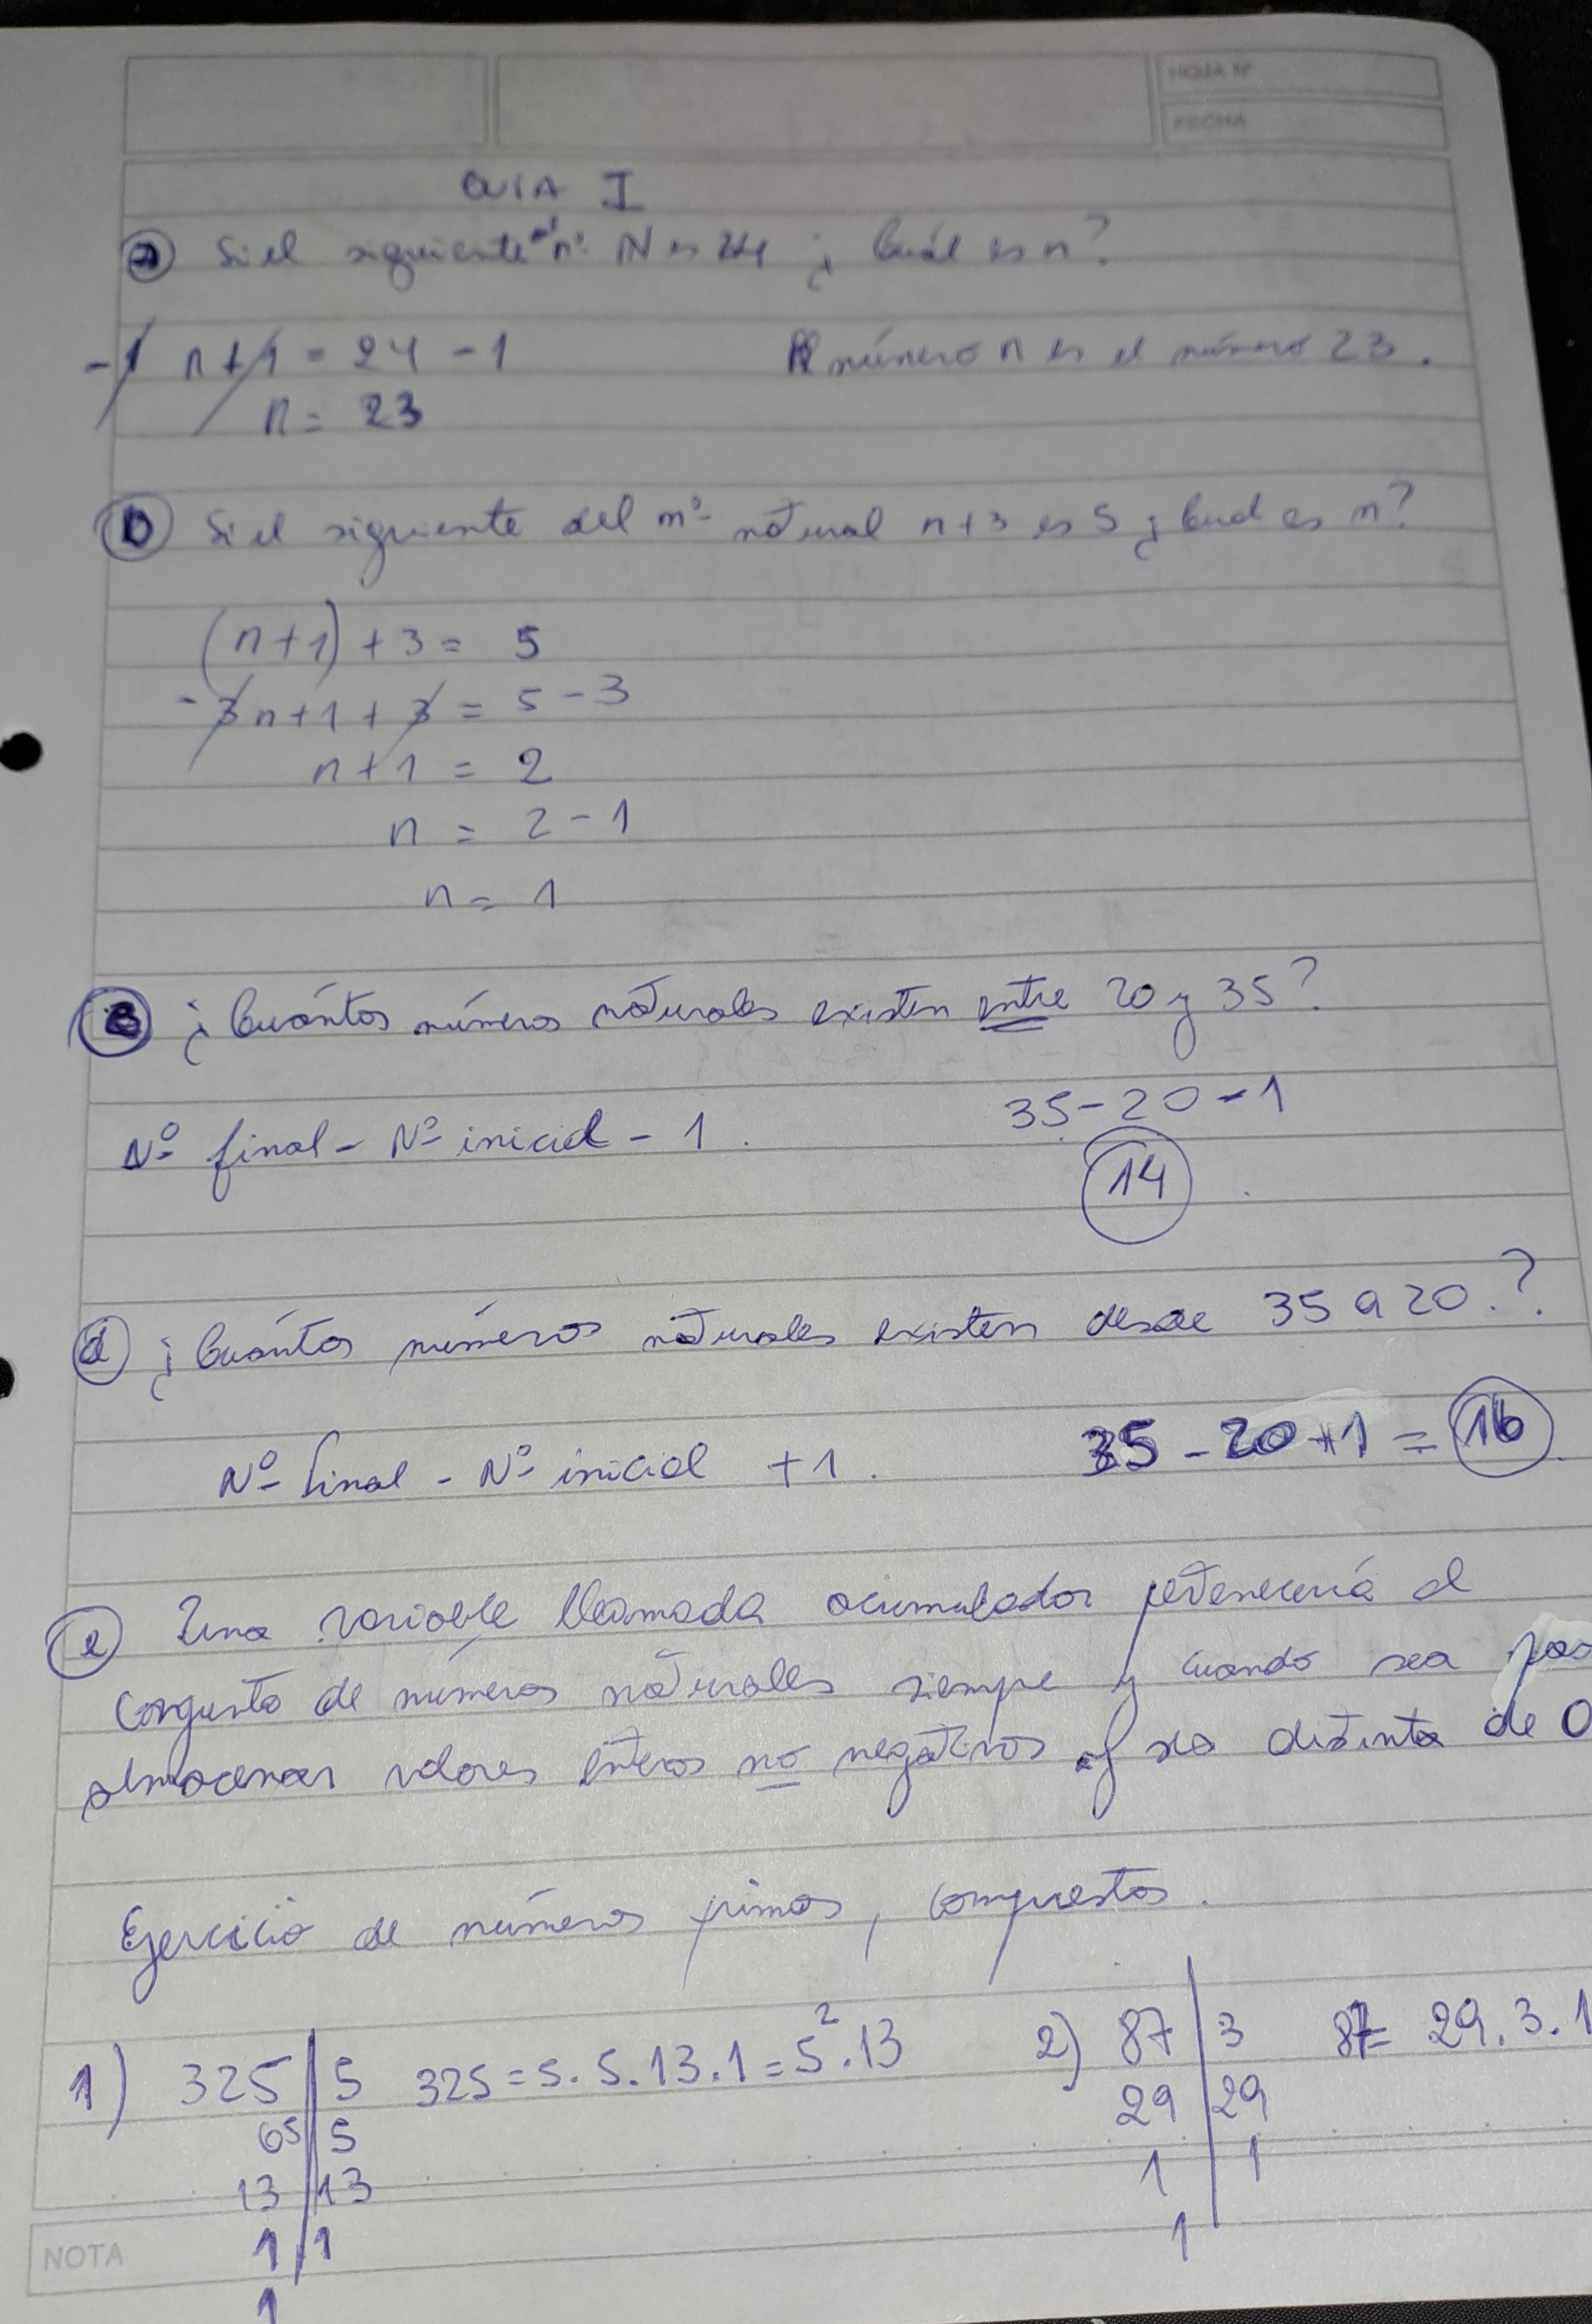 HOJA Nº
FECHA
GUIA I
a Si el siguiente del nº N es 24 ¿Cuál es n?
-1 n+1 = 24 - 1 El número n es el número 23.
n = 23
b Si el siguiente del nº natural n+3 es 5 ¿Cual es n?
(n+1) + 3 = 5
-3 n+1 + 3 = 5 - 3
n+1 = 2
n = 2 - 1
n = 1
c ¿Cuántos números naturales existen entre 20 y 35?
35 - 20 - 1
Nº final - Nº inicial - 1.
14
d ¿Cuántos números naturales existen desde 35 a 20.?
Nº final - Nº inicial + 1. 35 - 20 + 1 = 16
e Una variable llamada acumulador pertenecería al
conjunto de números naturales siempre y cuando sea para
almacenar valores enteros no negativos y sea distinta de 0
Ejercicio de números primos, compuestos.
1) 325 | 5 325 = 5.5.13.1 = 5².13 2) 87 | 3 87 = 29.3.1
65 | 5 29 | 29
13 | 13 1 | 1
1 | 1 1
NOTA
1